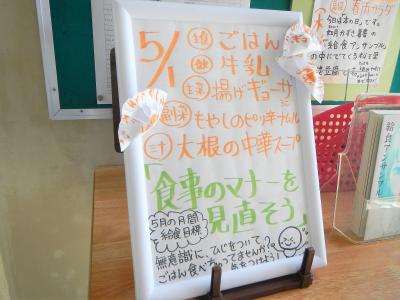 5/1
主 ごはん
飲 牛乳
主菜 揚げギョーザ
副菜 もやしのピリ辛ナムル
汁 大根の中華スープ
「食事のマナーを
見直そう」
5月の月間
給食目標
無意識に、ひじをついて
ごはん食べちゃってませんか?
気をつけよう!
今日は「本の日」です。
給食アンサンブル
の中にでてくる
給食アンサンブル